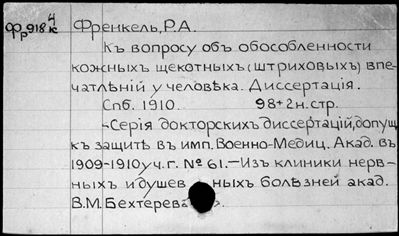 Фр918 4/к Френкель, Р.А.
Къ вопросу объ обособленности
кожныхъ щекотныхъ (штриховыхъ) впе-
чатлѣній у человѣка. Диссертація.
Спб. 1910. 98+2н.стр.
-Серія докторскихъ диссертацій, допущ.
къ защитѣ въ имп. Военно-Медиц. Акад. въ
1909-1910 уч. г. № 61.-Изъ клиники нерв-
ныхъ и душев ныхъ болѣзней акад.
В.М. Бехтерева